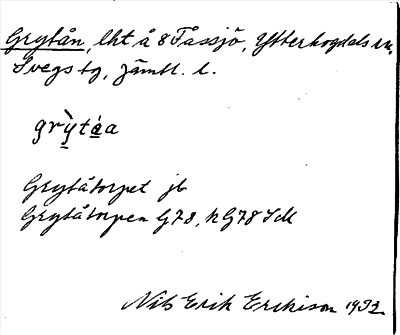 Grytån, lht å 8 Fåssjö, Ytterhogdals sn,
Svegs tg, Jämtl. l.
grỳtåa
Grytåtorpet jb
Grytåtorpen G78, hG78 SM
Nils Erik Erikison 1932